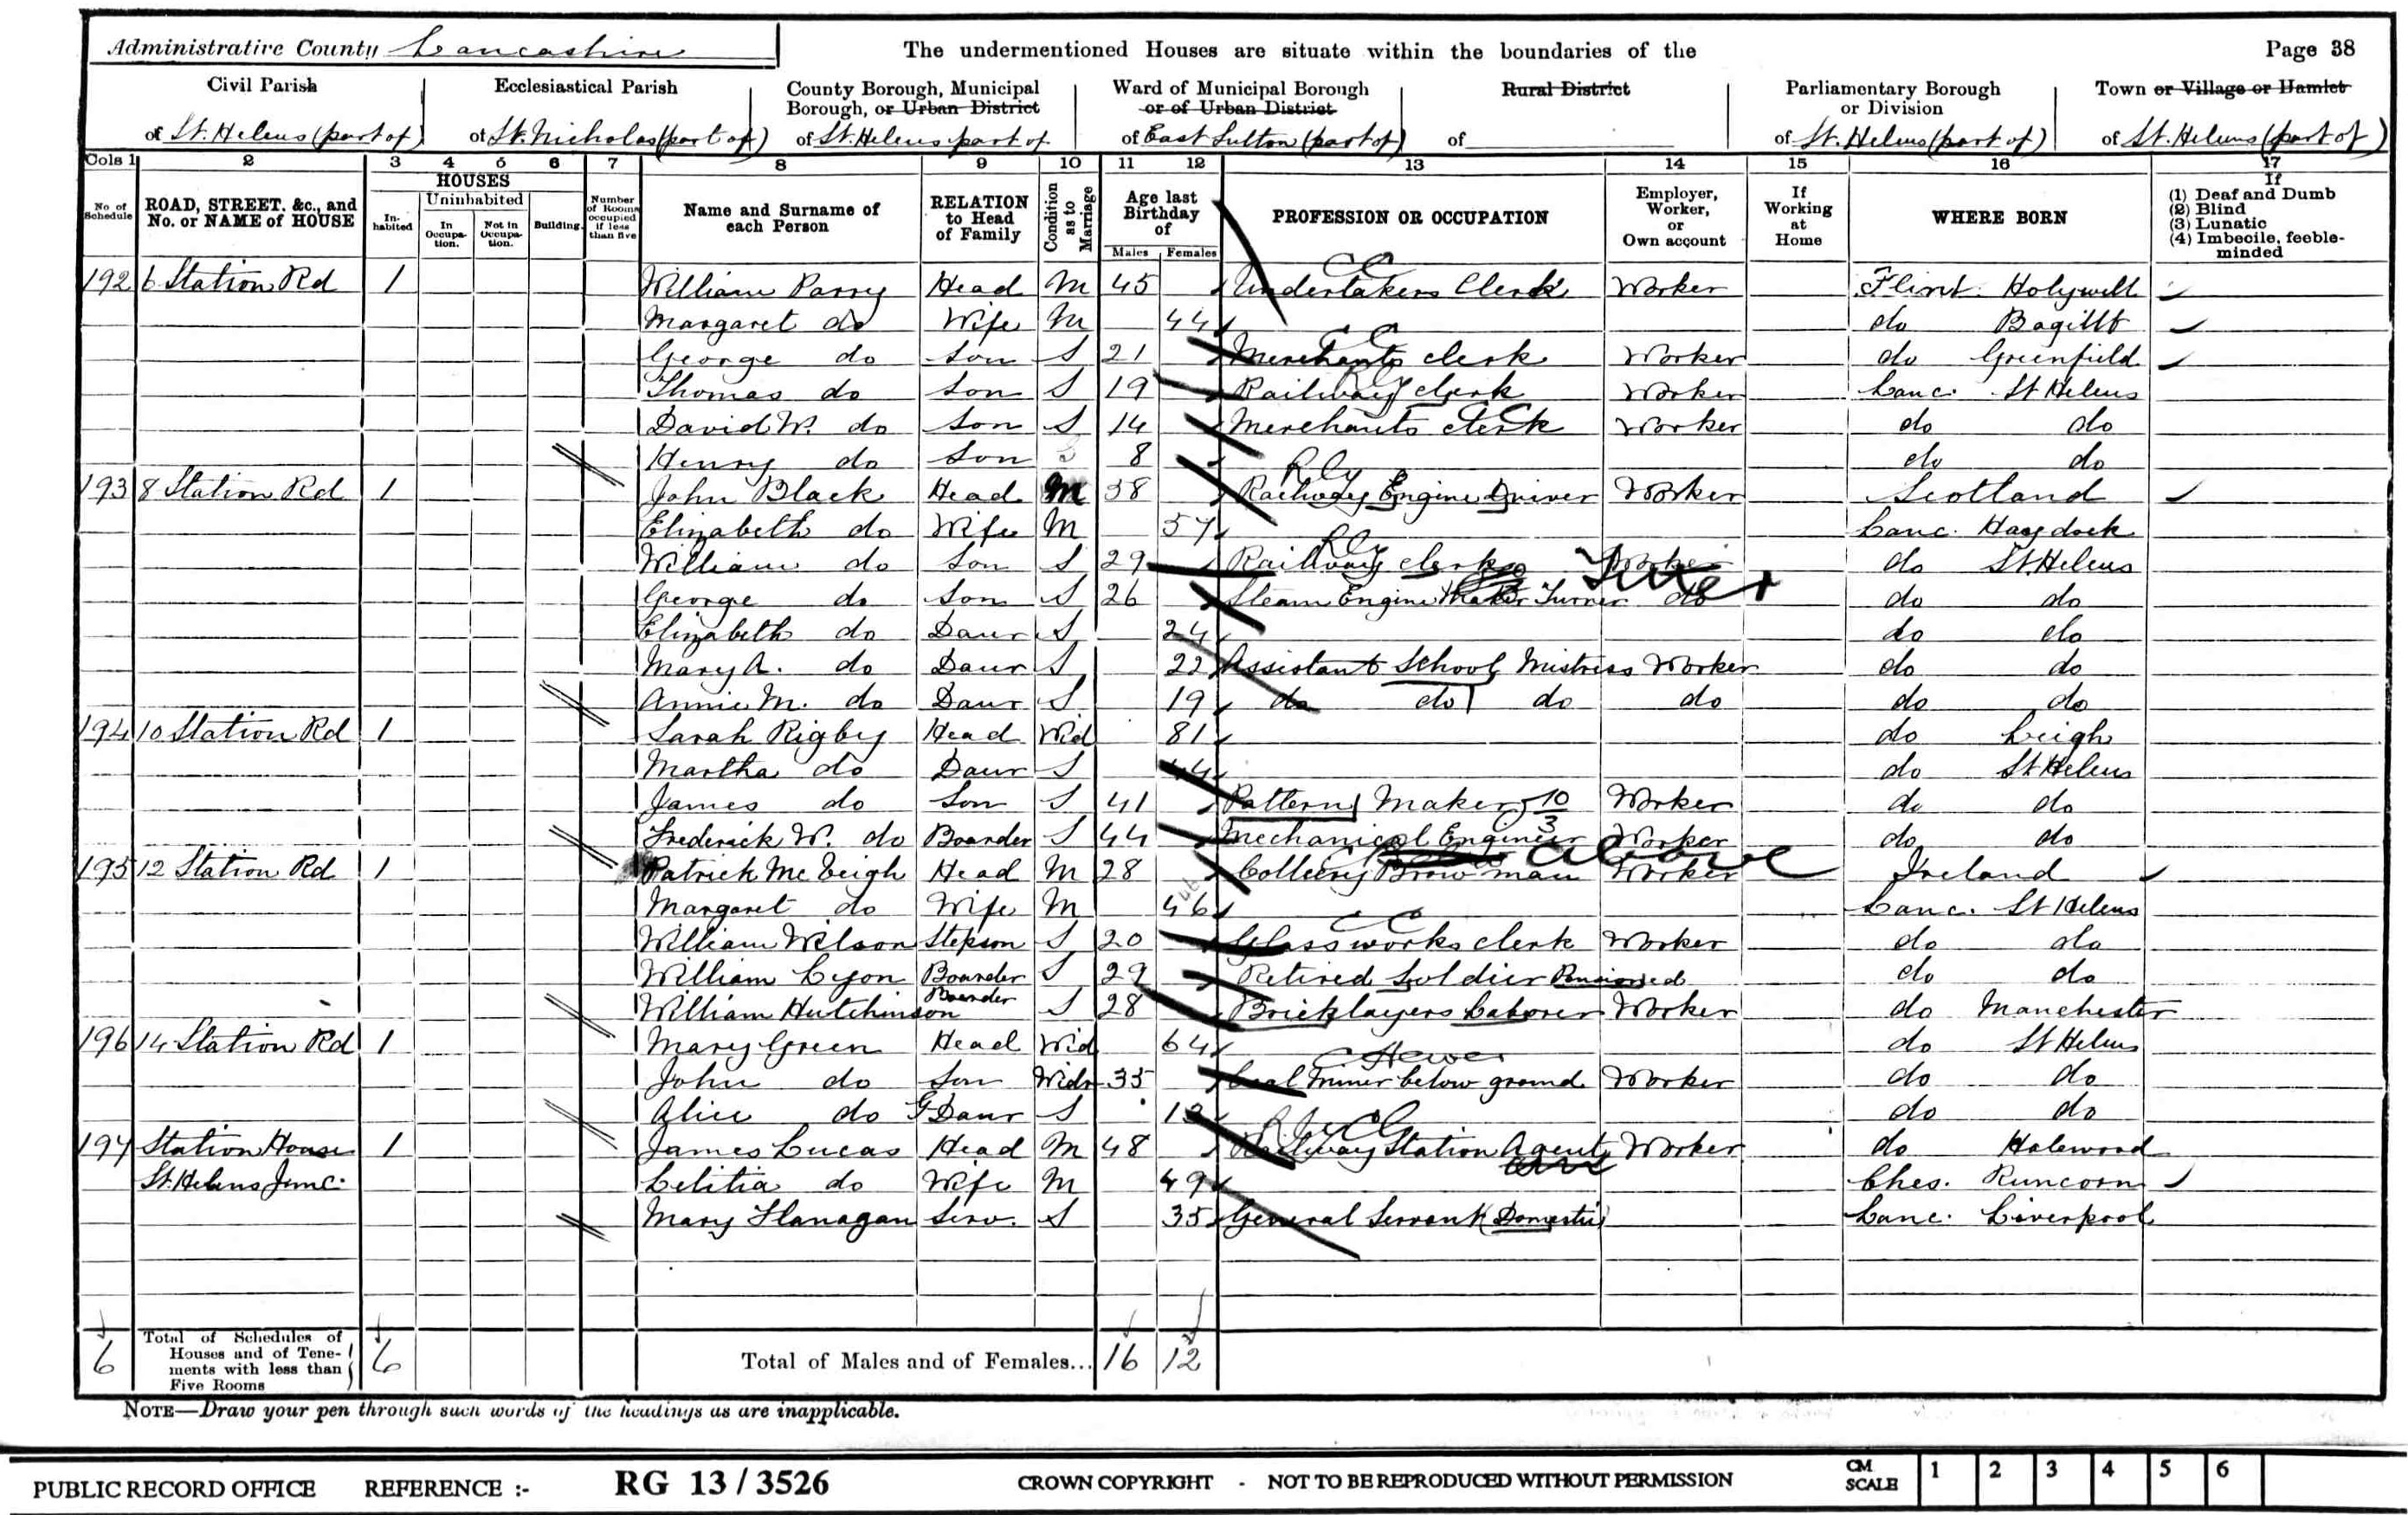 Administrative County Lancashire The undermentioned Houses are situate within the boundaries of the Page 38
Civil Parish Ecclesiastical Parish County Borough, Municipal Borough, or Urban District Ward of Municipal Borough or of Urban District Rural District Parliamentary Borough or Division Town or Village or Hamlet
of St. Helens (part of) of St. Nicholas (part of) of St. Helens part of of East Sutton (part of) of of St. Helens (part of) of St. Helens (part of)
Cols 1 2 3 4 5 6 7 8 9 10 11 12 13 14 15 16 17
No. of Schedule ROAD, STREET, &c., and No. or NAME of HOUSE HOUSES In-habited Uninhabited In Occupa-tion. Not in Occupa-tion. Building. Number of Rooms occupied if less than five Name and Surname of each Person RELATION to Head of Family Condition as to Marriage Age last Birthday of Males Females PROFESSION OR OCCUPATION Employer, Worker, or Own account If Working at Home WHERE BORN If (1) Deaf and Dumb (2) Blind (3) Lunatic (4) Imbecile, feeble-minded
192 6 Station Rd 1 William Parry Head M 45 Undertakers Clerk Worker Flint. Holywell
Margaret do Wife M 44 do Bagillt
George do Son S 21 Merchants clerk Worker do Greenfield
Thomas do Son S 19 Railway clerk Worker Lanc. St Helens
David W. do Son S 14 Merchants clerk Worker do do
Henry do Son 8 do do
193 8 Station Rd 1 John Black Head M 58 Rly Railway Engine Driver Worker Scotland
Elizabeth do Wife M 57 Lanc. Haydock
William do Son S 29 Rly Railway clerk Worker do St. Helens
George do Son S 26 Steam Engine Maker Turner do do do
Elizabeth do Daur S 24 do do
Mary A. do Daur S 22 Assistant School Mistress Worker do do
Annie M. do Daur S 19 do do do do do do
194 10 Station Rd 1 Sarah Rigby Head Wid 81 do Leigh
Martha do Daur S 44 do St Helens
James do Son S 41 Pattern Maker 10/3 Worker do do
Frederick W. do Boarder S 44 Mechanical Engineer Worker do do
195 12 Station Rd 1 Patrick Mc Teigh Head M 28 Colliery Brow man above Worker Ireland
Margaret do Wife M 46 Lanc. St Helens
William Wilson Stepson S 20 Glass works clerk Worker do do
William Lyon Boarder S 29 Retired Soldier Pensioned do do
William Hutchinson Boarder S 28 Bricklayers Laborer Worker do Manchester
196 14 Station Rd 1 Mary Green Head Wid 64 do St Helens
John do Son Widr 35 Hewer Coal Miner below ground Worker do do
Alice do G Daur S 12 do do
197 Station House 1 James Lucas Head M 48 Railway Station Agent Worker do Halewood
St. Helens Junc. Letitia do Wife M 49 Ches. Runcorn
Mary Flanagan Serv. S 35 General Servant (Domestic) Lanc. Liverpool
6 Total of Schedules of Houses and of Tene-ments with less than Five Rooms 6 Total of Males and of Females... 16 12
NOTE—Draw your pen through such words of the headings as are inapplicable.
PUBLIC RECORD OFFICE REFERENCE :- RG 13 / 3526 CROWN COPYRIGHT - NOT TO BE REPRODUCED WITHOUT PERMISSION CM SCALE 1 2 3 4 5 6